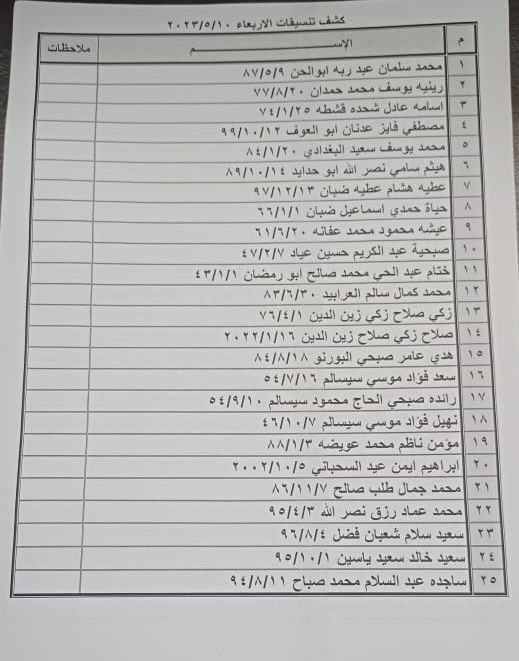 كشف تنسيقات الاربعاء ٢٠٢٣/٥/١٠
م الإســـــم ملاحظات
١ محمد سلمان عبد ربه ابوالحن ٨٧/٥/٩
٢ رينيه يوسف محمد حمدان ٧٧/٨/٢٠
٣ اسامه عادل شحده قشطه ٧٤/١/٢٥
٤ مصطفي فايز عدنان ابو العوف ٩٩/١٠/١٢
٥ محمد يوسف سعيد البغدادي ٨٤/١/٢٠
٦ هيثم سامي نصر الله ابو حدايد ٨٩/١٠/١٤
٧ عطيه هشام عطيه ضبان ٩٧/١٢/١٣
٨ حياة حمدي اسماعيل ضبان ٦٦/١/١
٩ عيشه محمود محمد عفانه ٦١/٦/٢٠
١٠ صبحية عبد الكريم حسين عياد ٤٧/٢/٧
١١ ختام عبد الحي محمد صالح ابو رمضان ٤٣/١/١
١٢ محمد كمال سالم العرابيد ٨٣/٦/٣٠
١٣ زكي صلاح زكي زين الدين ٧٦/٤/١
١٤ صلاح زكي صلاح زين الدين ٢٠٢٢/١/١٦
١٥ هدي عامر صبحي البورنو ٨٤/٨/١٨
١٦ سعد فؤاد موسي سيسالم ٥٤/٧/١٦
١٧ رائده صبحي الحاج محمود سيسالم ٥٤/٩/١٠
١٨ نهيل فؤاد موسي سيسالم ٤٦/١٠/٧
١٩ مؤمن ناظم محمد عويضه ٨٨/١/٣
٢٠ ابراهيم ايمن عيد السحباني ٢٠٠٢/١٠/٥
٢١ محمد جمال طلب صالح ٨٦/١١/٧
٢٢ محمد عماد رزق نصر الله ٩٥/٤/٣
٢٣ سعيد سلام شعبان فضل ٩٦/٨/٤
٢٤ سعيد خالد سعيد ياسين ٩٥/١٠/١
٢٥ ساجده عبد السلام محمد صباح ٩٤/٨/١١